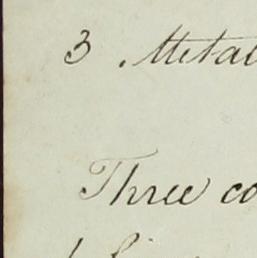 3 . Metal
Three co